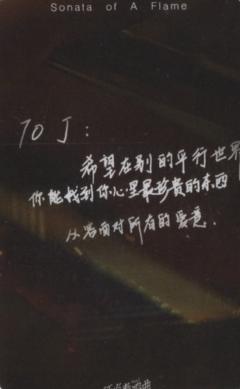 Sonata of A Flame
TO J：
希望在别的平行世界
你能找到你心里最珍贵的东西
从容面对所有的恶意.